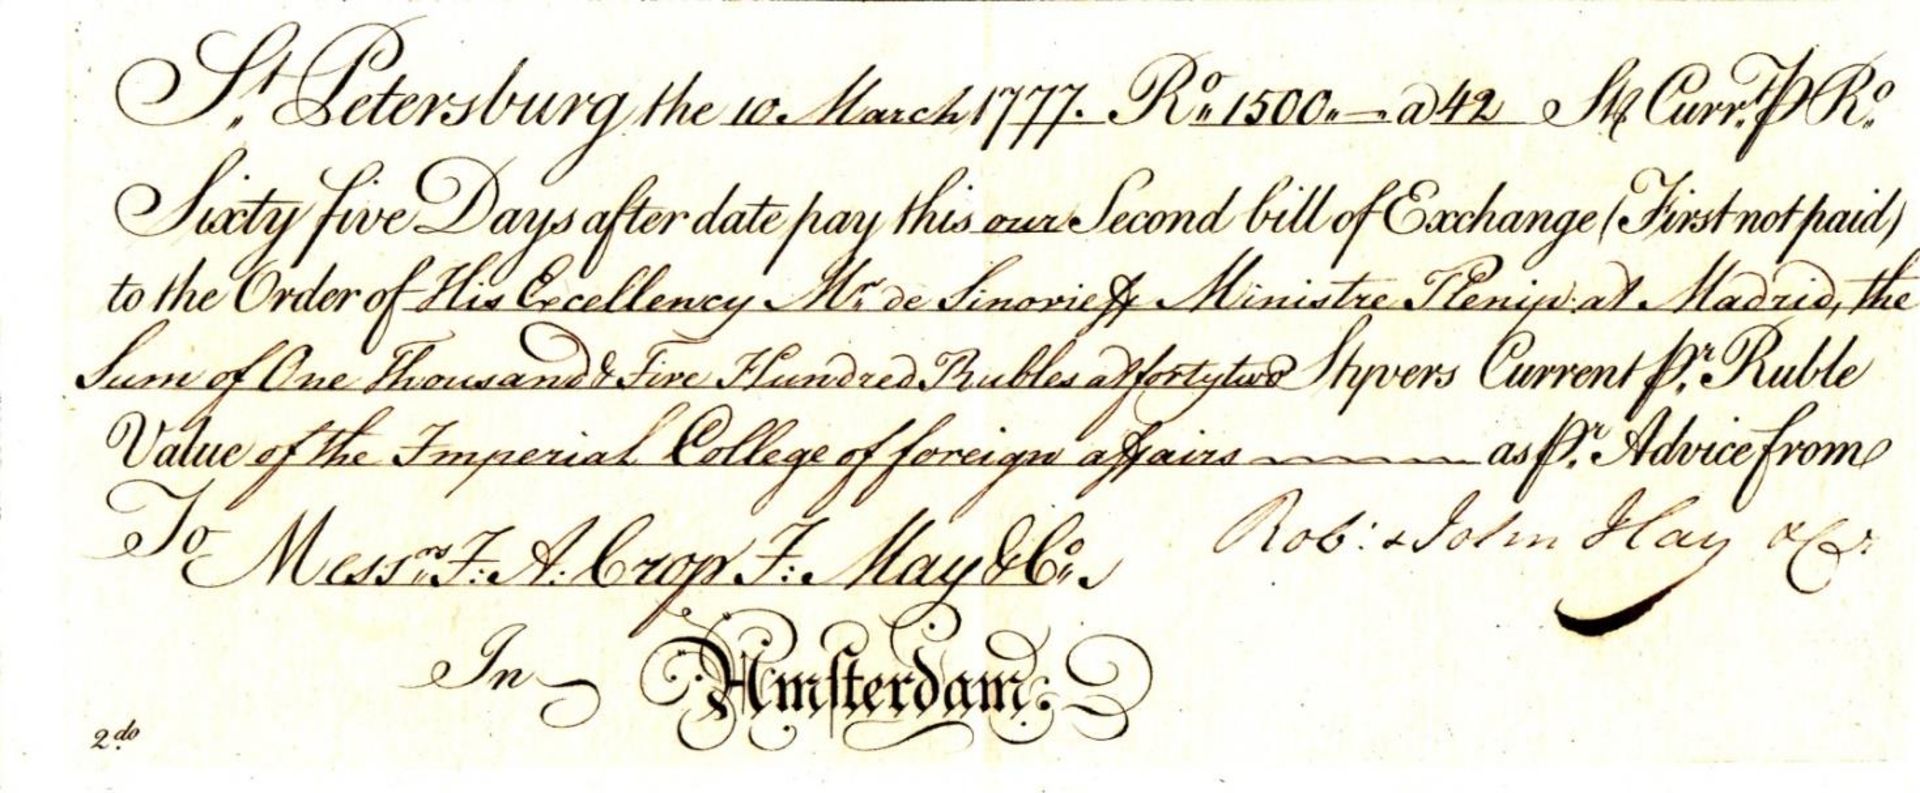 St. Petersburg the 10 March 1777. Ro. 1500.— a 42 Stq Currt. P Ro.
Sixty five Days after date pay this our Second bill of Exchange (First not paid)
to the Order of His Excellency Mr. de Sinovieff Ministre Plenip: at Madrid, the
Sum of One Thousand & Five Hundred Rubles at forty two Styvers Current Pr. Ruble
Value of the Imperial College of foreign affairs as Pr. Advice from
To Messrs. F: A: Crop F: May & Co. Rob: & John Hay & Co.
In Amsterdam:
2do